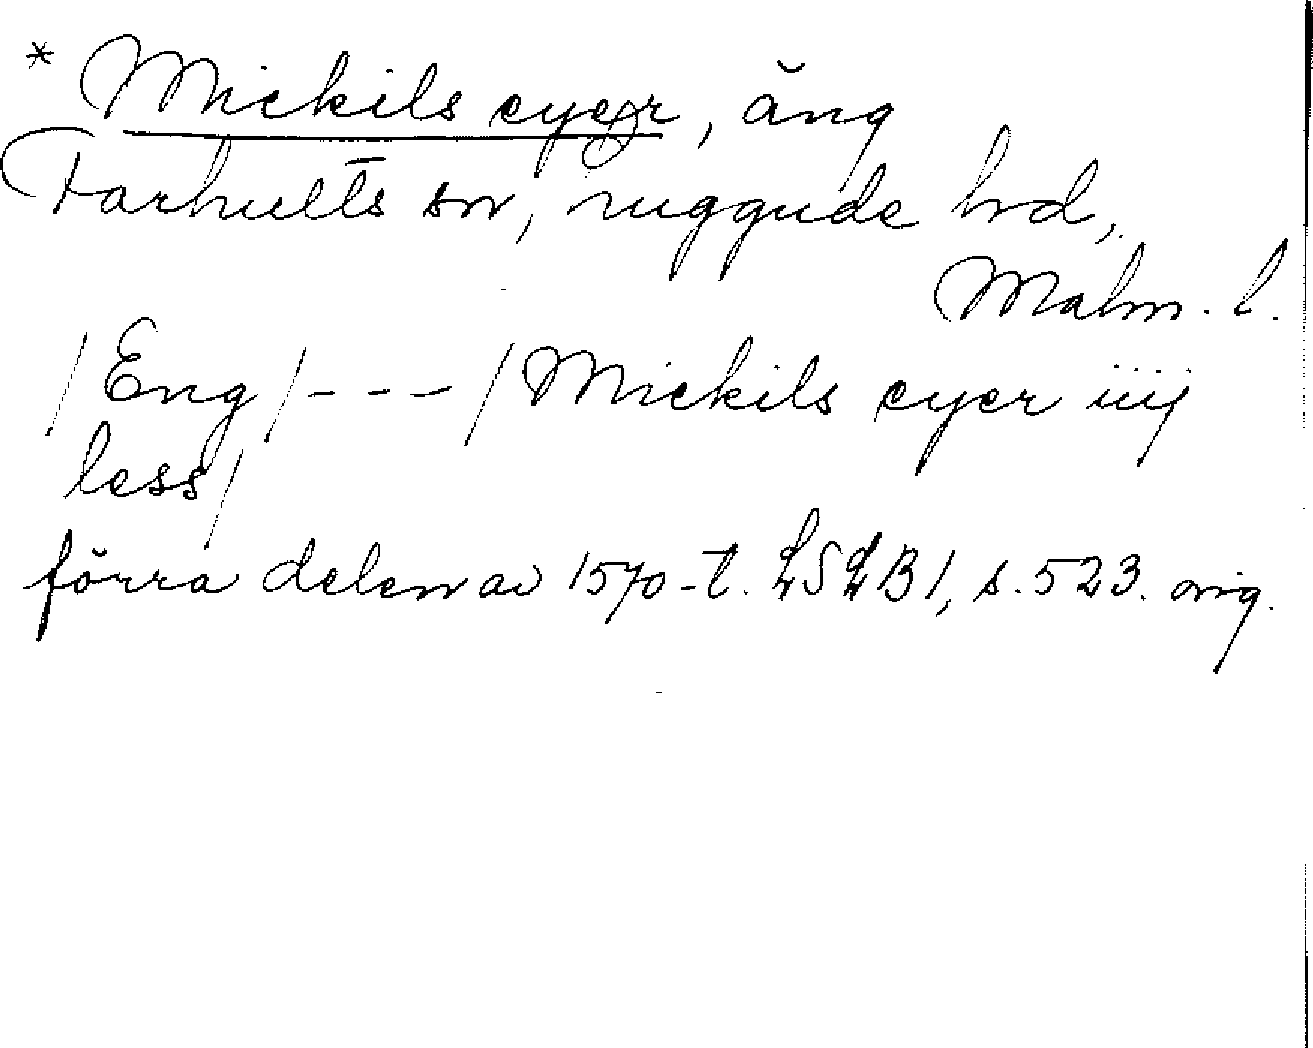 * Mickils eyer, äng
Farhults sn, Luggude hd,
Malm. l.
/Eng/ - - - / Mickils eyer iiij
less/
förra delen av 1570-t. LSLB 1, s. 523. orig.